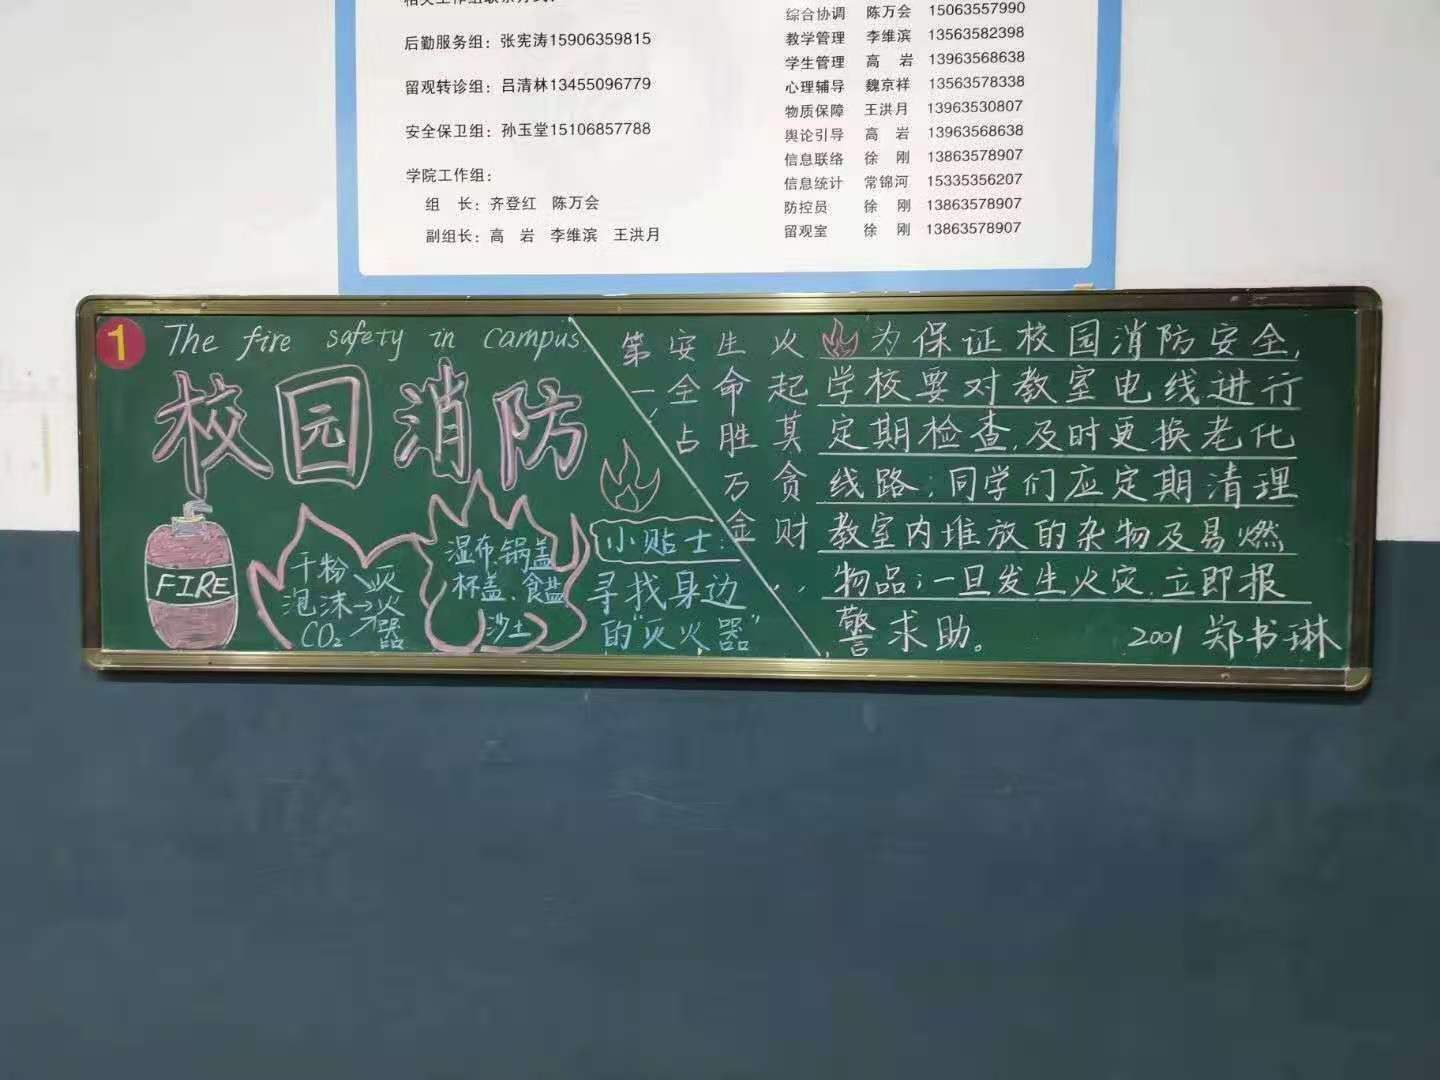 后勤服务组：张宪涛15906359815
留观转诊组：吕清林13455096779
安全保卫组：孙玉堂15106857788
学院工作组：
组　长：齐登红　陈万会
副组长：高　岩　李维滨　王洪月
综合协调　陈万会　15063557990
教学管理　李维滨　13563582398
学生管理　高　岩　13963568638
心理辅导　魏京祥　13563578338
物质保障　王洪月　13963530807
舆论引导　高　岩　13963568638
信息联络　徐　刚　13863578907
信息统计　常锦河　15335356207
防控员　徐　刚　13863578907
留观室　徐　刚　13863578907
1
The fire safety in campus
校园消防
FIRE
干粉
泡沫
CO₂
灭火器
湿布、锅盖
杯盖、食盐
沙土
小贴士：
寻找身边
的“灭火器”
火起莫贪财，
生命胜万金，
安全占
第一，
为保证校园消防安全，
学校要对教室电线进行
定期检查，及时更换老化
线路；同学们应定期清理
教室内堆放的杂物及易燃
物品；一旦发生火灾，立即报
警求助。
2001 郑书琳